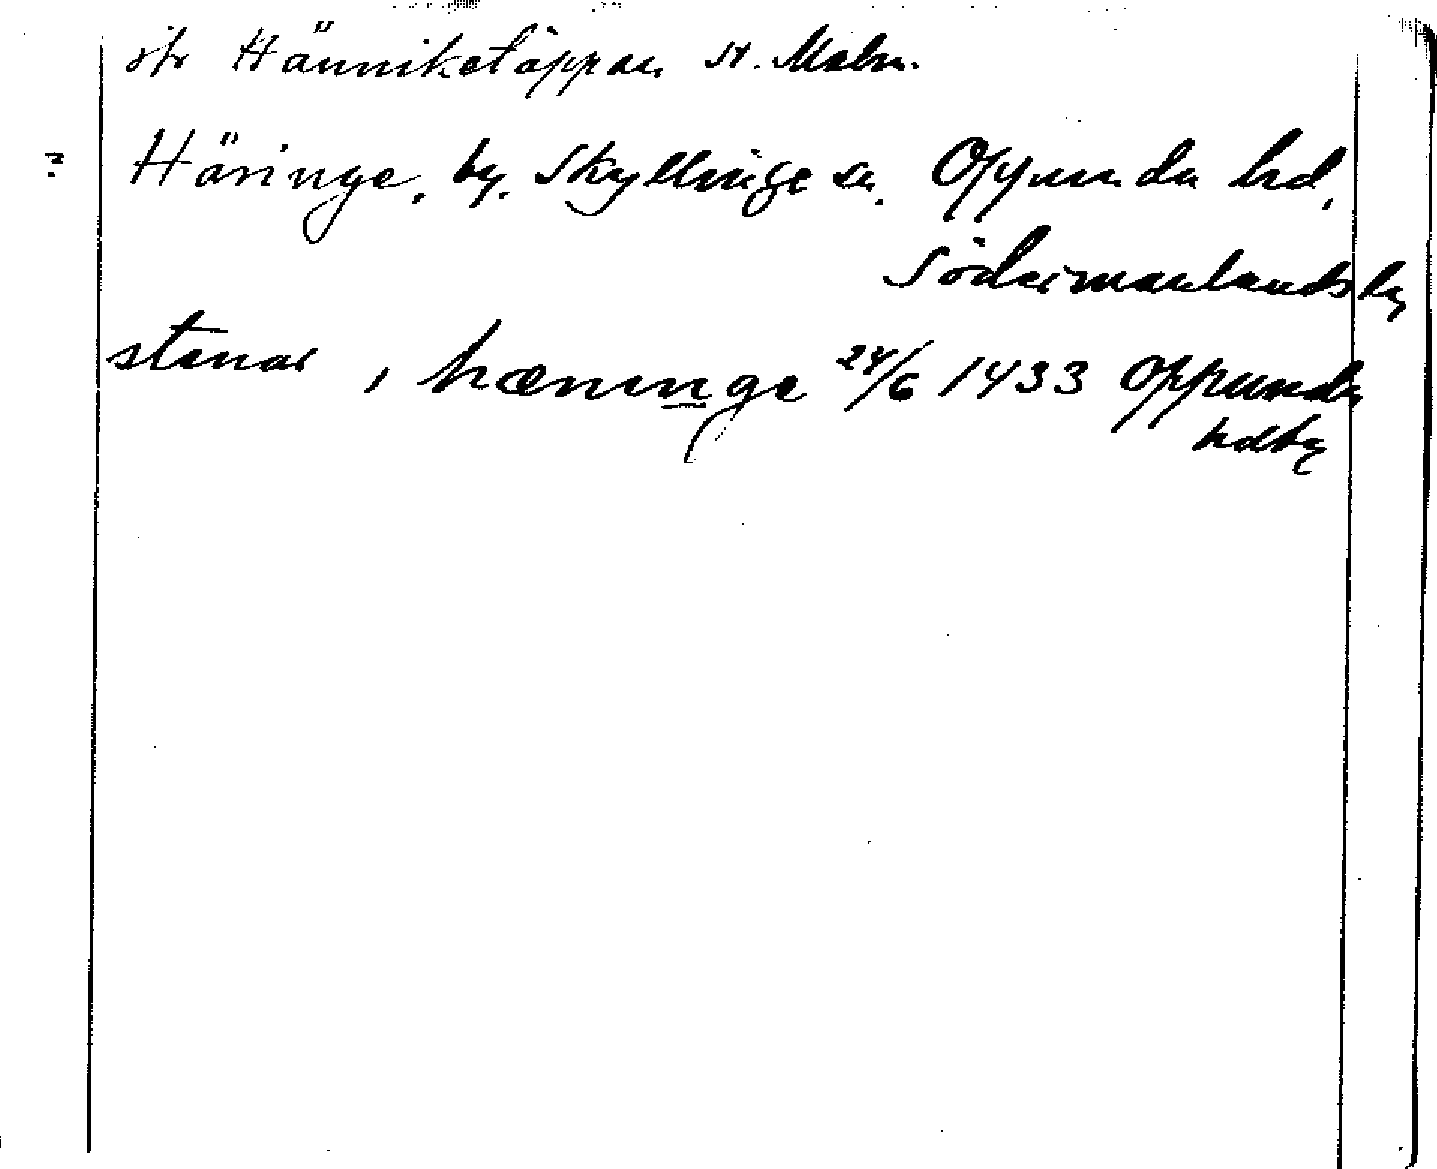 jfr Hänniketäppan St. Malm.
? Häringe, by. Skyllinge sn. Oppunda hd,
Södermanlands by
stenar, i hæninge 24/6 1433 Oppunda
hdby